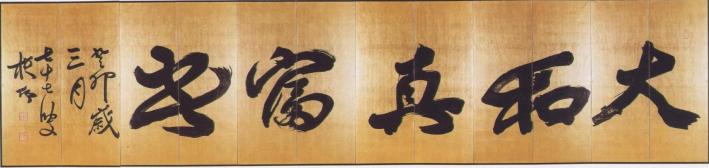 大和真富
癸卯歳
三月
七十七叟